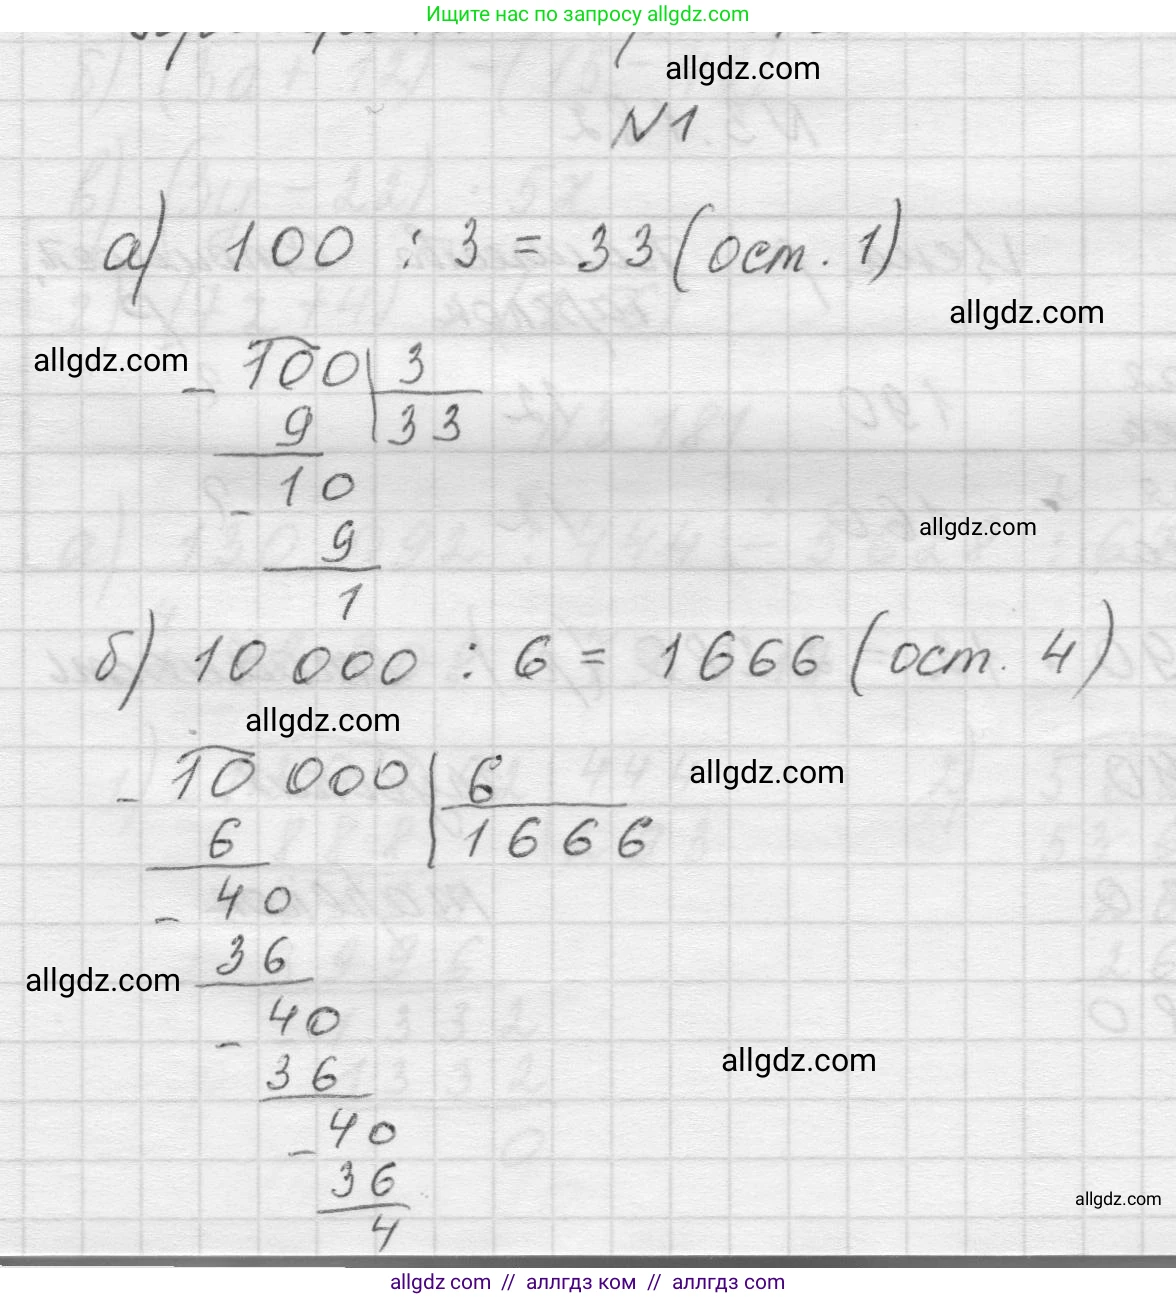 Ищите нас по запросу allgdz.com
allgdz.com
N1
а) 100 : 3 = 33 (ост. 1)
allgdz.com
allgdz.com
- 100 | 3
9 | 33
- 10
allgdz.com
9
1
б) 10 000 : 6 = 1666 (ост. 4)
allgdz.com
allgdz.com
- 10 000 | 6
6 | 1666
- 40
36
allgdz.com
- 40
allgdz.com
36
- 40
36
allgdz.com
4
allgdz.com // аллгдз ком // аллгдз.com